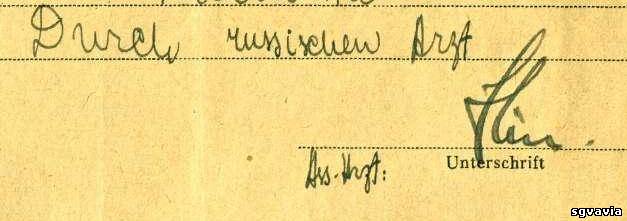 Durch russischen Arzt
Ass. Arzt:
Unterschrift
sgvavia